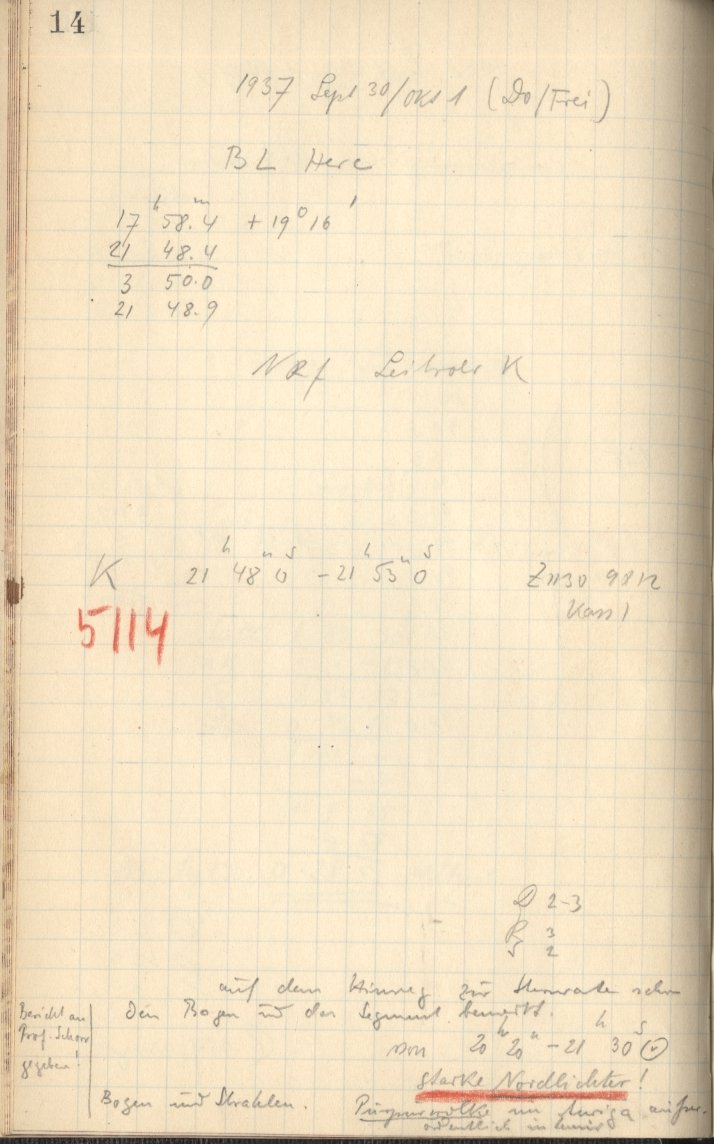 14
1937 Sept 30/Okt 1 (Do/Frei)
BL Herc
17 h 58. m 4 + 19° 16'
21 48.4
3 50.0
21 48.9
K 21 h 48 m 0 s - 21 h 53 m 0 s
5114
D 2-3
R 3
S 2
auf dem Hinweg zur Sternwarte schon
den Bogen und das Segment bemerkt.
Bericht an
Prof. Schorr
gegeben!
von 20 h 20 m - 21 h 30
starke Nordlichter!
Bogen und Strahlen. Purpurwolke im Auriga außer-
ordentlich intensiv